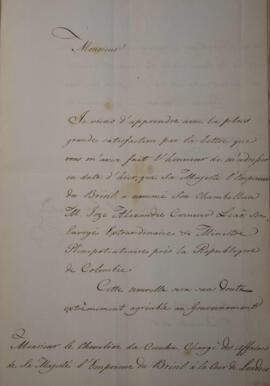 Monsieur
Je viens d'apprendre avec la plus
grande satisfaction par la lettre que
vous m'avez fait l'honneur de m'adresser
en date d'hier, que Sa Majesté l'Empereur
du Brésil a nommé Son Chambellan
M. Joze Alexandre Carneiro Leão En-
voyé Extraordinaire et Ministre
Plenipotentiaire près la Republique
de Colombie.
Cette nouvelle sera sans doute
extrêmement agréable au Gouvernement
Monsieur le Chevalier da Cunha Chargé des Affaires
de Sa Majesté l'Empereur du Brésil à la Cour de Londres